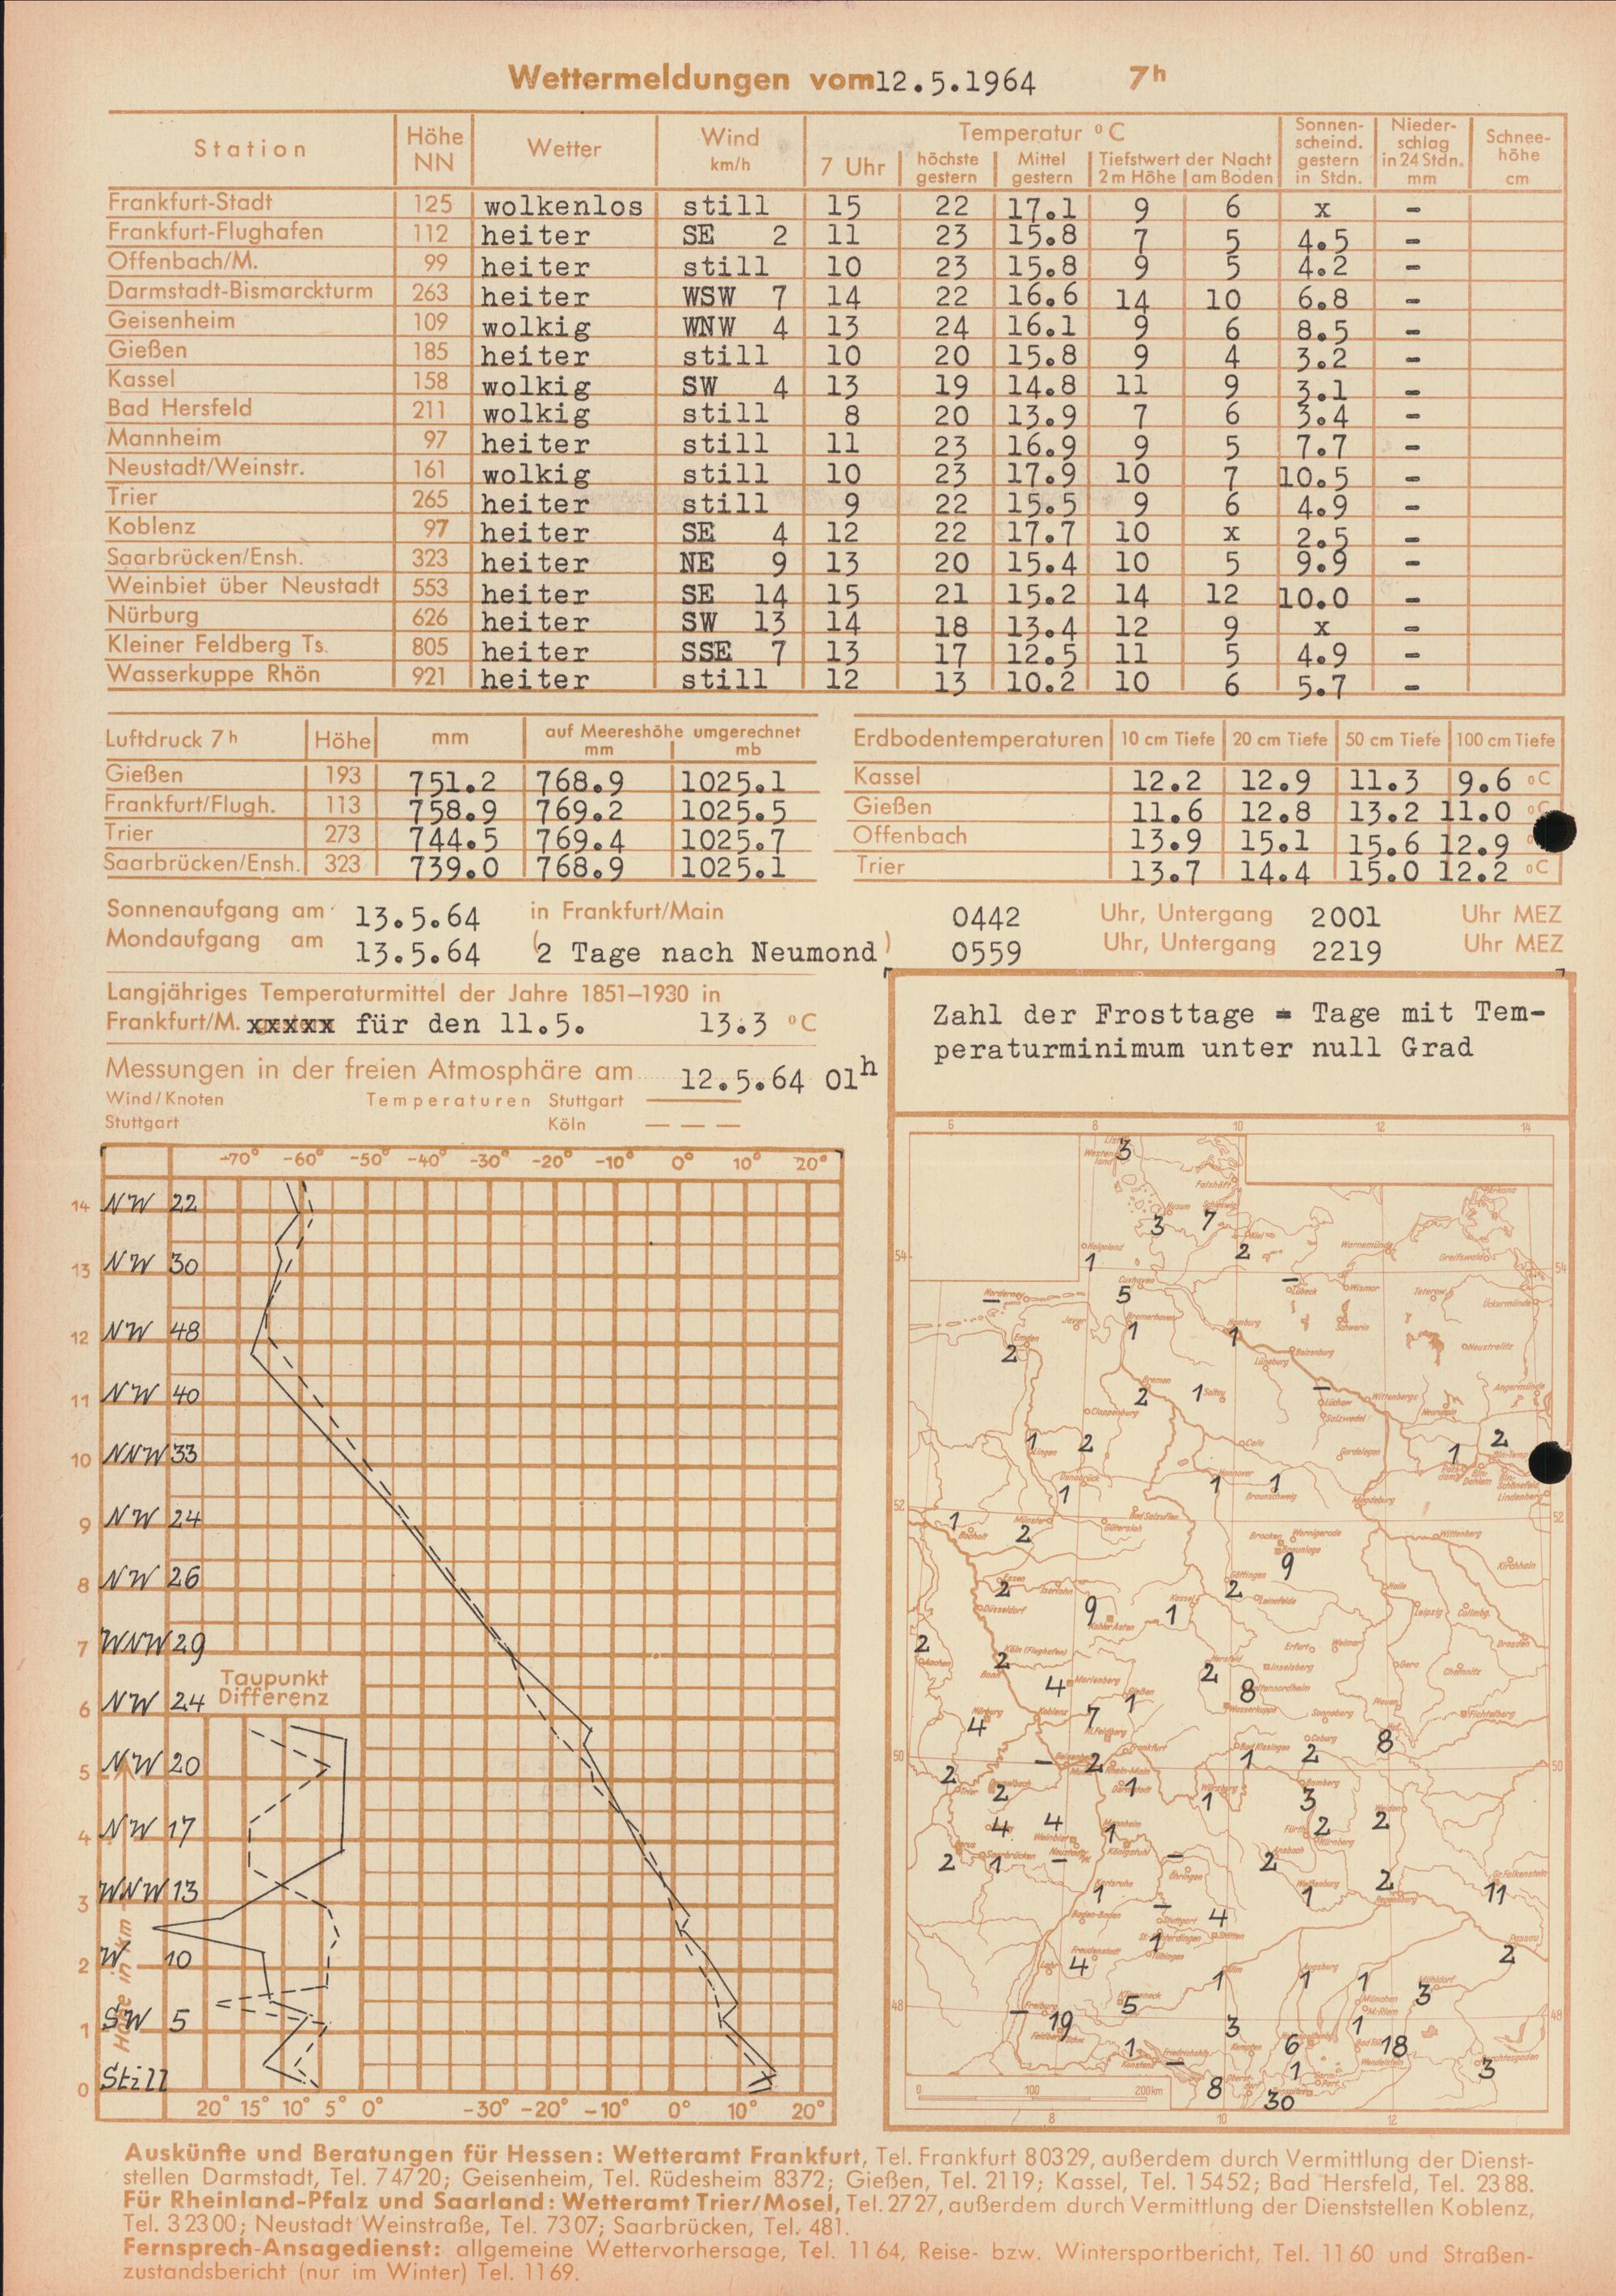 Wettermeldungen vom 12.5.1964 7h
Station Höhe NN Wetter Wind km/h Temperatur °C 7 Uhr höchste gestern Mittel gestern Tiefstwert der Nacht 2 m Höhe am Boden Sonnen-scheind. gestern in Stdn. Nieder-schlag in 24 Stdn. mm Schnee-höhe cm
Frankfurt-Stadt 125 wolkenlos still 15 22 17.1 9 6 x -
Frankfurt-Flughafen 112 heiter SE 2 11 23 15.8 7 5 4.5 -
Offenbach/M. 99 heiter still 10 23 15.8 9 5 4.2 -
Darmstadt-Bismarckturm 263 heiter WSW 7 14 22 16.6 14 10 6.8 -
Geisenheim 109 wolkig WNW 4 13 24 16.1 9 6 8.5 -
Gießen 185 heiter still 10 20 15.8 9 4 3.2 -
Kassel 158 wolkig SW 4 13 19 14.8 11 9 3.1 -
Bad Hersfeld 211 wolkig still 8 20 13.9 7 6 3.4 -
Mannheim 97 heiter still 11 23 16.9 9 5 7.7 -
Neustadt/Weinstr. 161 wolkig still 10 23 17.9 10 7 10.5 -
Trier 265 heiter still 9 22 15.5 9 6 4.9 -
Koblenz 97 heiter SE 4 12 22 17.7 10 x 2.5 -
Saarbrücken/Ensh. 323 heiter NE 9 13 20 15.4 10 5 9.9 -
Weinbiet über Neustadt 553 heiter SE 14 15 21 15.2 14 12 10.0 -
Nürburg 626 heiter SW 13 14 18 13.4 12 9 x -
Kleiner Feldberg Ts. 805 heiter SSE 7 13 17 12.5 11 5 4.9 -
Wasserkuppe Rhön 921 heiter still 12 13 10.2 10 6 5.7 -
Luftdruck 7h Höhe mm auf Meereshöhe umgerechnet mm mb
Gießen 193 751.2 768.9 1025.1
Frankfurt/Flugh. 113 758.9 769.2 1025.5
Trier 273 744.5 769.4 1025.7
Saarbrücken/Ensh. 323 739.0 768.9 1025.1
Erdbodentemperaturen 10 cm Tiefe 20 cm Tiefe 50 cm Tiefe 100 cm Tiefe
Kassel 12.2 12.9 11.3 9.6 °C
Gießen 11.6 12.8 13.2 11.0 °C
Offenbach 13.9 15.1 15.6 12.9
Trier 13.7 14.4 15.0 12.2 °C
Sonnenaufgang am 13.5.64 in Frankfurt/Main 0442 Uhr, Untergang 2001 Uhr MEZ
Mondaufgang am 13.5.64 (2 Tage nach Neumond) 0559 Uhr, Untergang 2219 Uhr MEZ
Langjähriges Temperaturmittel der Jahre 1851–1930 in
Frankfurt/M. xxxxx für den 11.5. 13.3 °C
Messungen in der freien Atmosphäre am 12.5.64 01h
Wind/Knoten Temperaturen Stuttgart
Stuttgart Köln
-70° -60° -50° -40° -30° -20° -10° 0° 10° 20°
14 NW 22
13 NW 30
12 NW 48
11 NW 40
10 NNW 33
9 NW 24
8 NW 26
7 WNW 29
Taupunkt
Differenz
6 NW 24
5 NW 20
4 NW 17
3 WNW 13
2 W 10
1 SW 5
0 Still
Höhe in km
20° 15° 10° 5° 0° -30° -20° -10° 0° 10° 20°
Zahl der Frosttage = Tage mit Tem-
peraturminimum unter null Grad
6 8 10 12 14
3
3 7
1 2
Helgoland
Cuxhaven 5
Norderney
Emden 2
Bremerhaven 1
Hamburg 1
Lüneburg
Bremen 2
Soltau 1
Hannover 1
Braunschweig 1
Münster 2
Göttingen 2
Kassel 1
Düsseldorf
Frankfurt
0 100 200 km
8 10 12
Auskünfte und Beratungen für Hessen: Wetteramt Frankfurt, Tel. Frankfurt 80329, außerdem durch Vermittlung der Dienst-
stellen Darmstadt, Tel. 74720; Geisenheim, Tel. Rüdesheim 8372; Gießen, Tel. 2119; Kassel, Tel. 15452; Bad Hersfeld, Tel. 2388.
Für Rheinland-Pfalz und Saarland: Wetteramt Trier/Mosel, Tel. 2727, außerdem durch Vermittlung der Dienststellen Koblenz,
Tel. 32300; Neustadt Weinstraße, Tel. 7307; Saarbrücken, Tel. 481.
Fernsprech-Ansagedienst: allgemeine Wettervorhersage, Tel. 1164, Reise- bzw. Wintersportbericht, Tel. 1160 und Straßen-
zustandsbericht (nur im Winter) Tel. 1169.